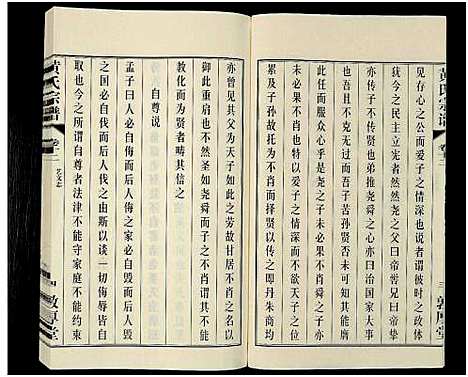 黄氏宗谱
卷三
三
敦厚堂
见存心之公而爱子之情深也说而言之彼时之政体
犹今之民主立宪者尧之父曰帝挚
尧以兄不贤也弟推尧及位治国家大事
任而服众心乎于是为而吾子苦孙贤也不可其能膺
未必果不肖而爱子之情深不欲天子之位
及子孙故托为不肖而择贤以传之即丹朱商均
亦曾见其父为天子如此之劳故甘居不肖之名以
御此重启也不然圣如尧舜而子不肖谓其不
教化而为之贤者畴其信之
自尊说
孟子曰人必自侮而后人侮之家必自毁而后人毁
之国必自伐而后人伐之由斯以谈一切侮辱皆自
取也今之所谓自尊者法律不能守家庭不能约束
黄氏宗谱
卷三
艺文志
敦厚堂